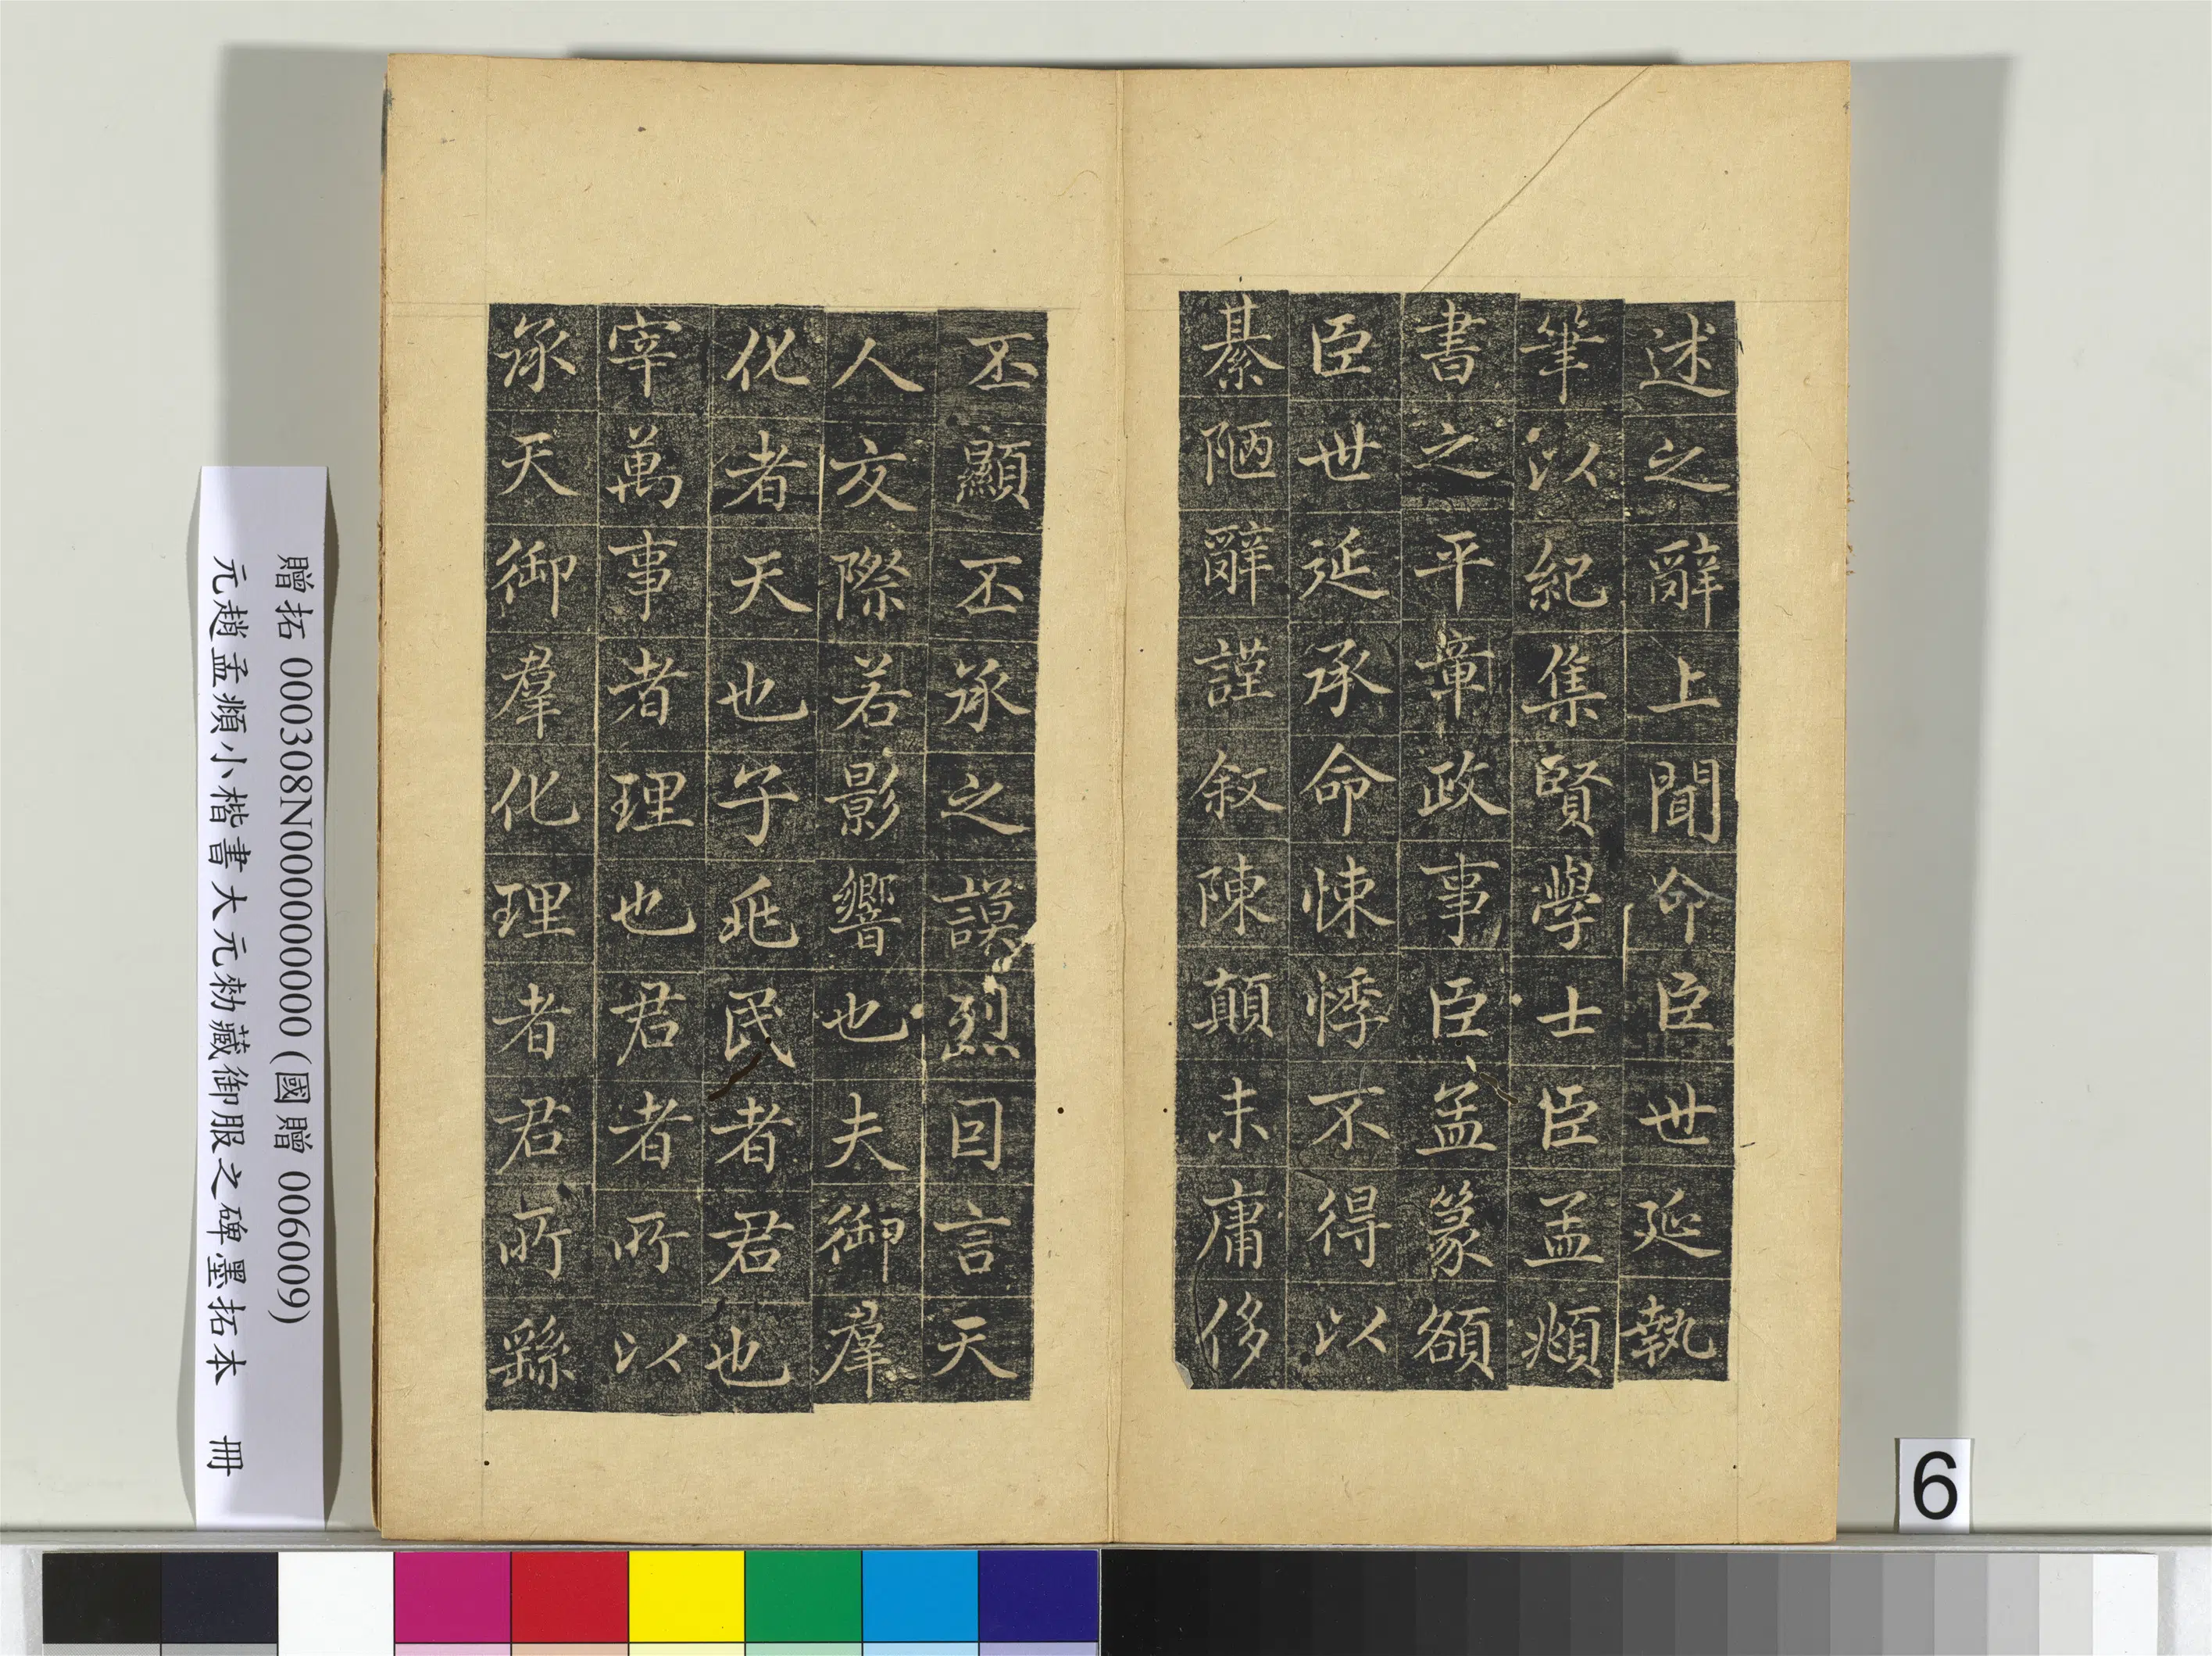 述之辭上聞命臣世延執
筆以紀集賢學士臣孟頫
書之平章政事臣孟篆額
臣世延承命悚悸不得以
綦陋辭謹叙陳顛末庸侈
丕顯丕承之謨烈曰言天
人交際若影響也夫御羣
化者天也子兆民者君也
宰萬事者理也君者所以
承天御羣化理者君所繇
贈拓 000308N000000000 (國贈 006009)
元趙孟頫小楷書大元勑藏御服之碑墨拓本 冊
6